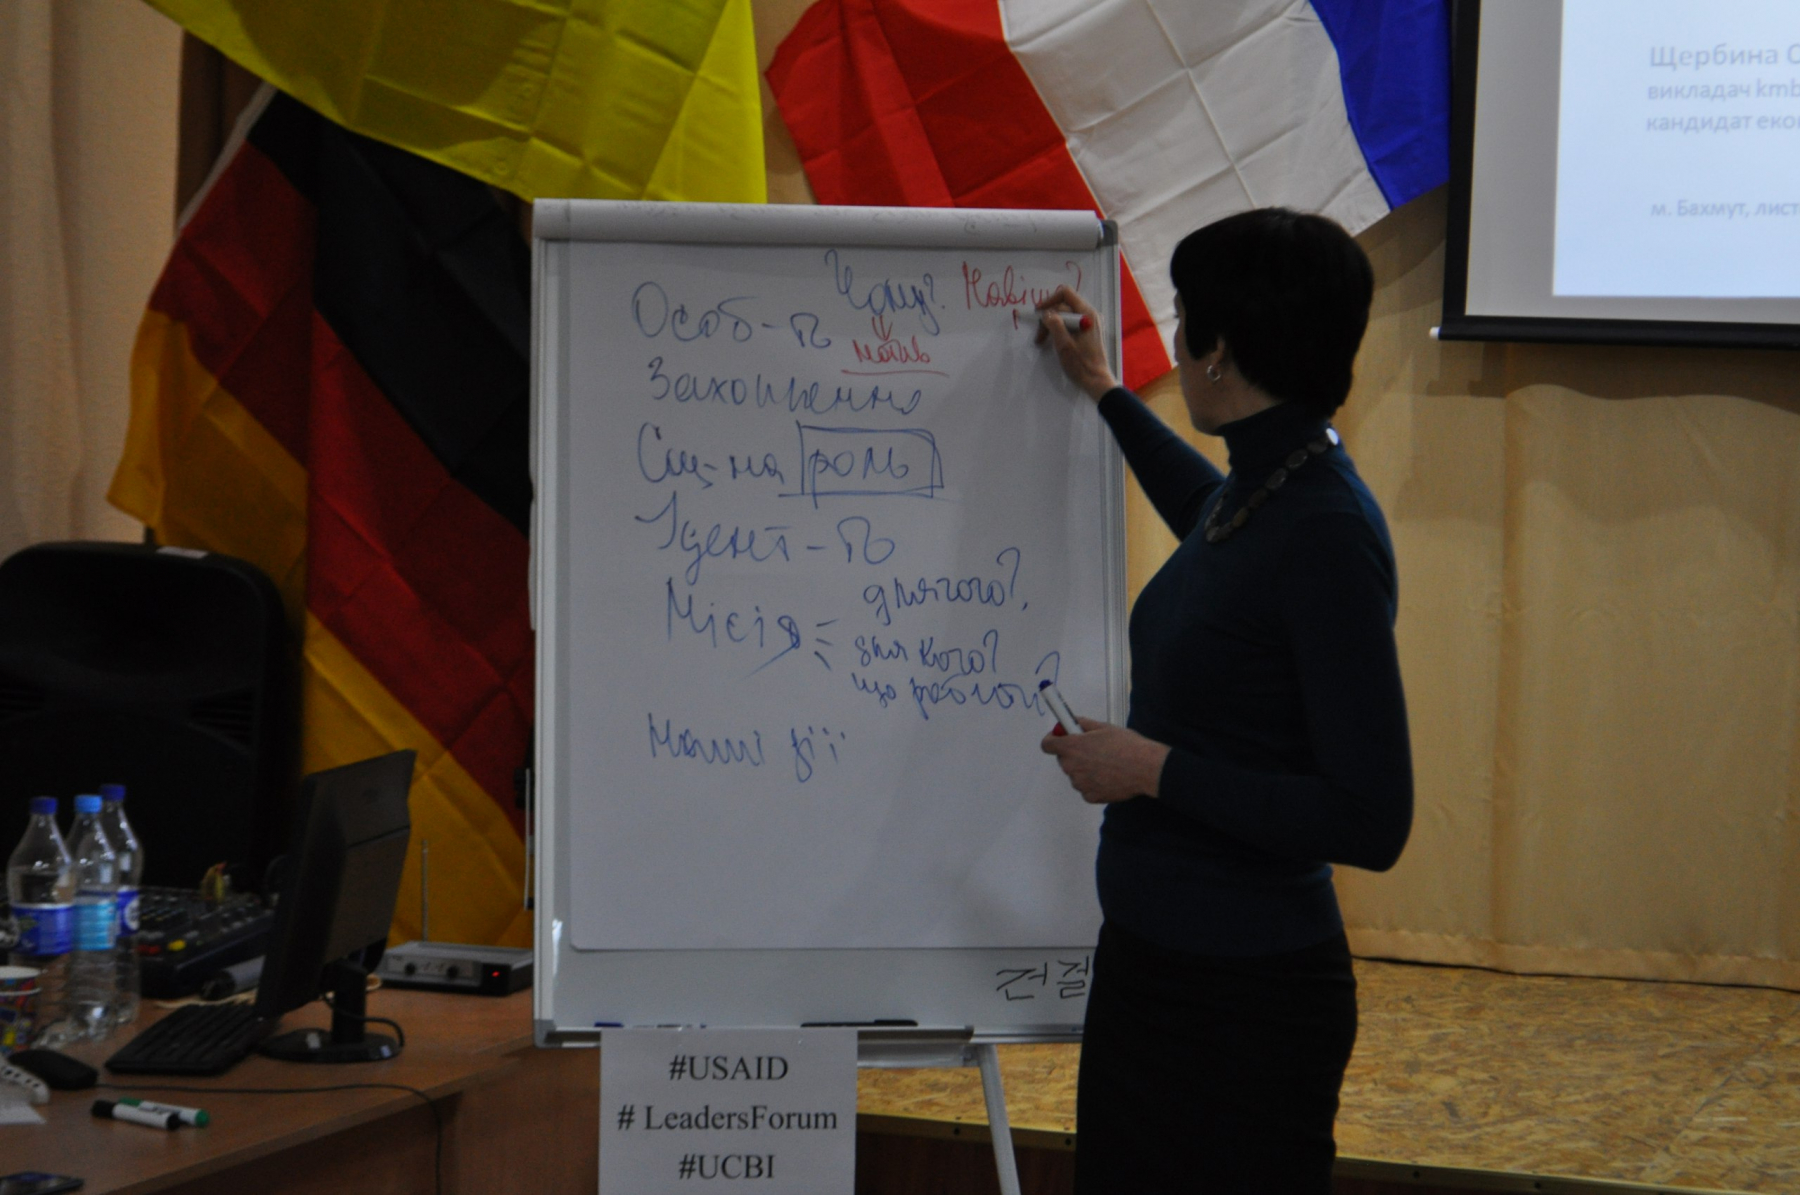 Чому? Навіщо?
Особ-ть
мотив
Захоплення
Соц-на роль
Ідент-ть
Місія = для чого?
для кого?
що робити?
Наші дії
전결
#USAID
# LeadersForum
#UCBI
Щербина О
викладач kmb
кандидат еко
м. Бахмут, лист